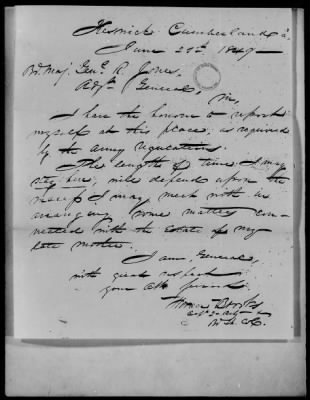 Keswick Cumberland
June 27th 1849
Bt. Maj. Genl. R. Jones.
Adjt. General,
Sir,
I have the honour to report
myself at this place, as required
by the army regulations.
The length of time I may
stay here, will depend upon the
success I may meet with in
arranging some matters con-
nected with the estate of my
late mother.
I am, General,
with great respect
your Obt Servant.
Horace Brooks
Capt 2d Arty
Bt Lt Col.